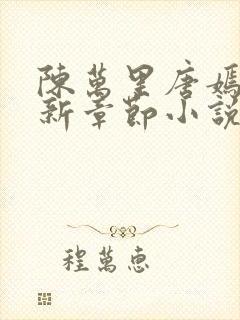 陳萬里唐嫣
新章節小說
程萬惠